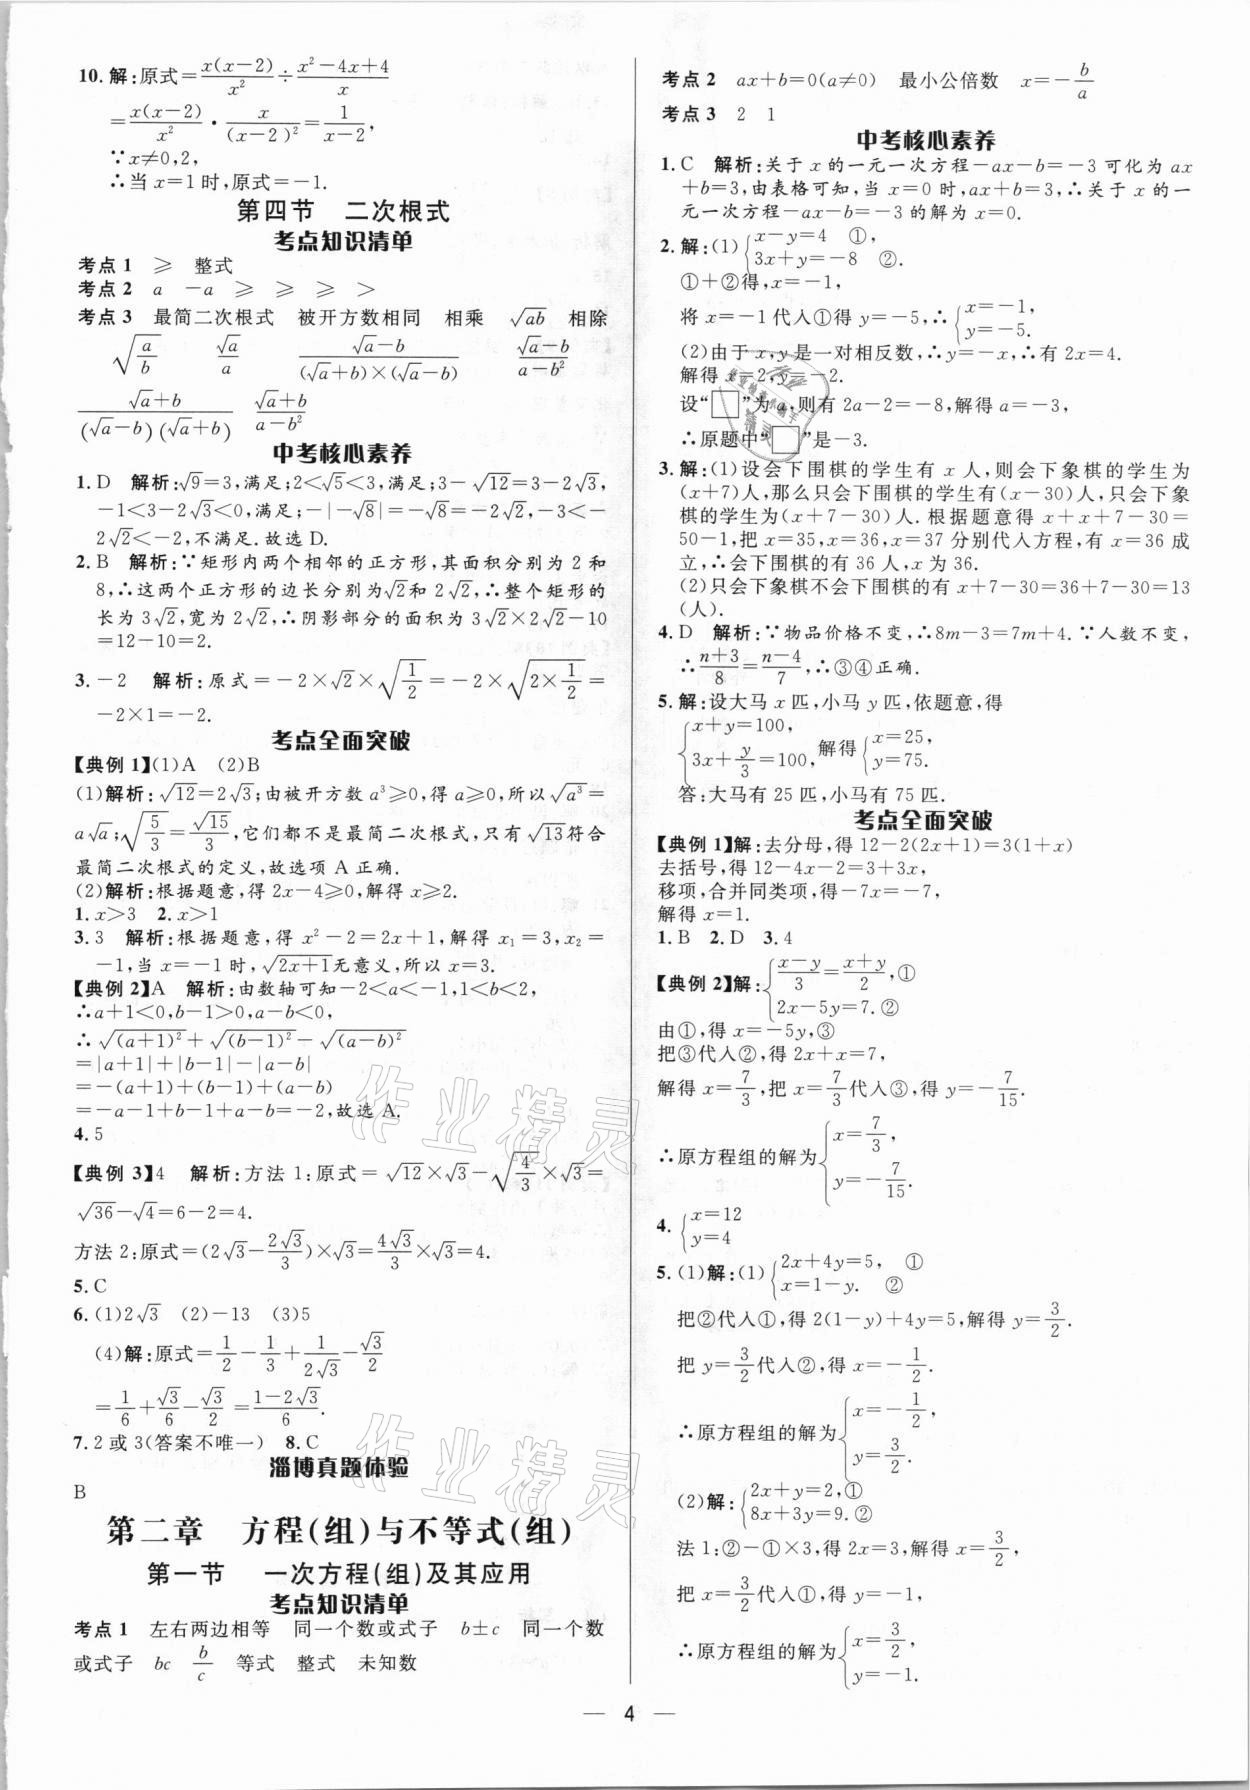 10.解:原式=x(x-2)/x²÷(x²-4x+4)/x
=x(x-2)/x²·x/(x-2)²=1/(x-2),
∵x≠0,2,
∴当 x=1 时,原式=-1.
第四节 二次根式
考点知识清单
考点 1 ⩾ 整式
考点 2 a -a ⩾ ⩾ ⩾ >
考点 3 最简二次根式 被开方数相同 相乘 √ab 相除
√(a/b) √a/a (√a-b)/((√a+b)×(√a-b)) (√a-b)/(a-b²)
(√a+b)/((√a-b)(√a+b)) (√a+b)/(a-b²)
中考核心素养
1. D 解析:√9=3,满足;2<√5<3,满足;3-√12=3-2√3,
-1<3-2√3<0,满足;-|-√8|=-√8=-2√2,-3<-
2√2<-2,不满足.故选 D.
2. B 解析:∵矩形内两个相邻的正方形,其面积分别为 2 和
8,∴这两个正方形的边长分别为√2和 2√2,∴整个矩形的
长为 3√2,宽为 2√2,∴阴影部分的面积为 3√2×2√2-10
=12-10=2.
3. -2 解析:原式=-2×√2×√(1/2)=-2×√(2×1/2)=
-2×1=-2.
考点全面突破
【典例 1】(1)A (2)B
(1)解析:√12=2√3;由被开方数 a³⩾0,得 a⩾0,所以√a³=
a√a;√(5/3)=√15/3,它们都不是最简二次根式,只有√13符合
最简二次根式的定义,故选项 A 正确.
(2)解析:根据题意,得 2x-4⩾0,解得 x⩾2.
1. x>3 2. x>1
3. 3 解析:根据题意,得 x²-2=2x+1,解得 x₁=3,x₂=
-1,当 x=-1 时,√(2x+1)无意义,所以 x=3.
【典例 2】A 解析:由数轴可知-2<a<-1,1<b<2,
∴a+1<0,b-1>0,a-b<0,
∴√(a+1)²+√(b-1)²-√(a-b)²
=|a+1|+|b-1|-|a-b|
=-(a+1)+(b-1)+(a-b)
=-a-1+b-1+a-b=-2,故选 A.
4. 5
【典例 3】4 解析:方法 1:原式=√12×√3-√(4/3)×√3=
√36-√4=6-2=4.
方法 2:原式=(2√3-2√3/3)×√3=4√3/3×√3=4.
5. C
6. (1)2√3 (2)-13 (3)5
(4)解:原式=1/2-1/3+1/(2√3)-√3/2
=1/6+√3/6-√3/2=(1-2√3)/6.
7. 2 或 3(答案不唯一) 8. C
淄博真题体验
B
第二章 方程(组)与不等式(组)
第一节 一次方程(组)及其应用
考点知识清单
考点 1 左右两边相等 同一个数或式子 b±c 同一个数
或式子 bc b/c 等式 整式 未知数
考点 2 ax+b=0(a≠0) 最小公倍数 x=-b/a
考点 3 2 1
中考核心素养
1. C 解析:关于 x 的一元一次方程-ax-b=-3 可化为 ax
+b=3,由表格可知,当 x=0 时,ax+b=3,∴关于 x 的一
元一次方程-ax-b=-3 的解为 x=0.
2. 解:(1){x-y=4 ①,
3x+y=-8 ②.
①+②得,x=-1,
将 x=-1 代入①得 y=-5,∴{x=-1,
y=-5.
(2)由于 x,y 是一对相反数,∴y=-x,∴有 2x=4.
解得 x=2,y=-2.
设“□”为 a,则有 2a-2=-8,解得 a=-3,
∴原题中“□”是-3.
3. 解:(1)设会下围棋的学生有 x 人,则会下象棋的学生为
(x+7)人,那么只会下围棋的学生有(x-30)人,只会下象
棋的学生为(x+7-30)人.根据题意得 x+x+7-30=
50-1,把 x=35,x=36,x=37 分别代入方程,有 x=36 成
立,∴会下围棋的有 36 人,x 为 36.
(2)只会下象棋不会下围棋的有 x+7-30=36+7-30=13
(人).
4. D 解析:∵物品价格不变,∴8m-3=7m+4.∵人数不变,
∴(n+3)/8=(n-4)/7,∴③④正确.
5. 解:设大马 x 匹,小马 y 匹,依题意,得
{x+y=100,
3x+y/3=100, 解得{x=25,
y=75.
答:大马有 25 匹,小马有 75 匹.
考点全面突破
【典例 1】解:去分母,得 12-2(2x+1)=3(1+x)
去括号,得 12-4x-2=3+3x,
移项,合并同类项,得-7x=-7,
解得 x=1.
1. B 2. D 3. 4
【典例 2】解:{(x-y)/3=(x+y)/2,①
2x-5y=7.②
由①,得 x=-5y,③
把③代入②,得 2x+x=7,
解得 x=7/3,把 x=7/3代入③,得 y=-7/15.
∴原方程组的解为{x=7/3,
y=-7/15.
4. {x=12
y=4
5. (1)解:(1){2x+4y=5, ①
x=1-y. ②
把②代入①,得 2(1-y)+4y=5,解得 y=3/2.
把 y=3/2代入②,得 x=-1/2.
∴原方程组的解为{x=-1/2,
y=3/2.
(2)解:{2x+y=2,①
8x+3y=9.②
法 1:②-①×3,得 2x=3,解得 x=3/2,
把 x=3/2代入①,得 y=-1,
∴原方程组的解为{x=3/2,
y=-1.
4
作业精灵
作业精灵